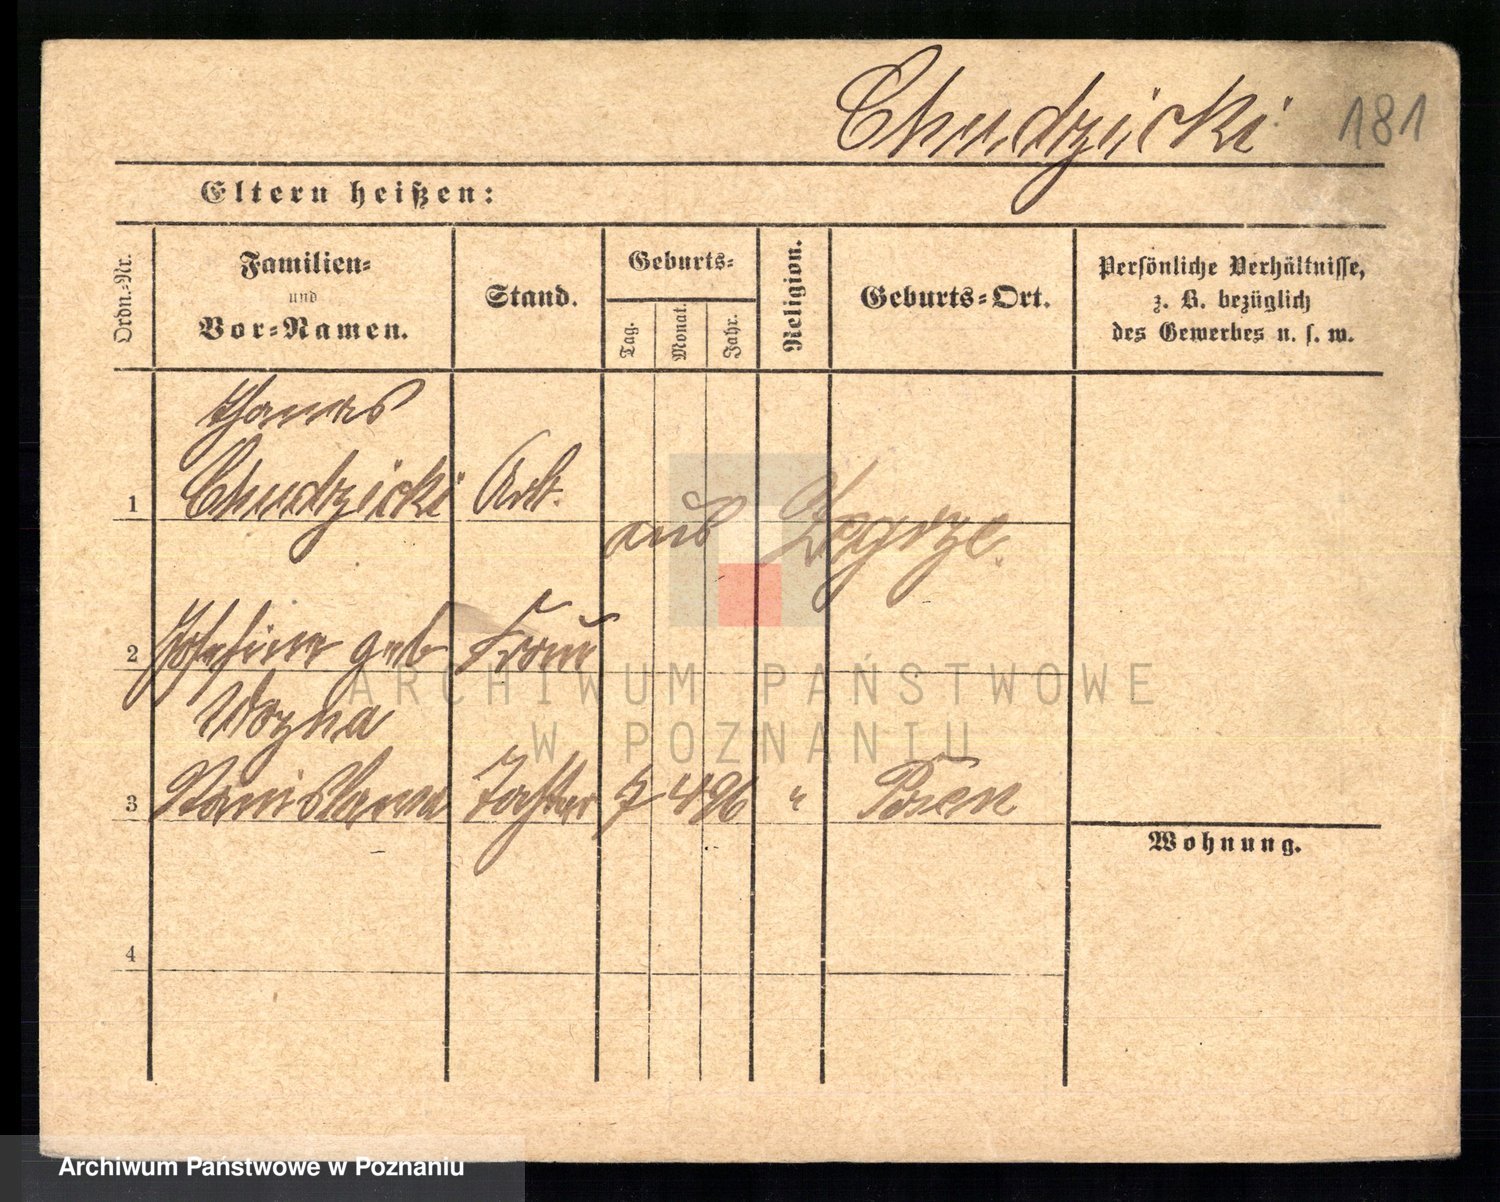 Chudzicki 181
Eltern heißen:
Ordn.-Nr.
Familien-
und
Vor-Namen.
Stand.
Geburts-
Tag.
Monat.
Jahr.
Religion.
Geburts-Ort.
Persönliche Verhältnisse,
z. B. bezüglich
des Gewerbes u. s. w.
Thomas
1 Chudzicki Arb.
aus Zegrze.
2 Josefine geb Frau
Wozna
3 Stanislawa Tochter 7 4 96 " Posen
Wohnung.
4
ARCHIWUM PAŃSTWOWE
W POZNANIU
Archiwum Państwowe w Poznaniu